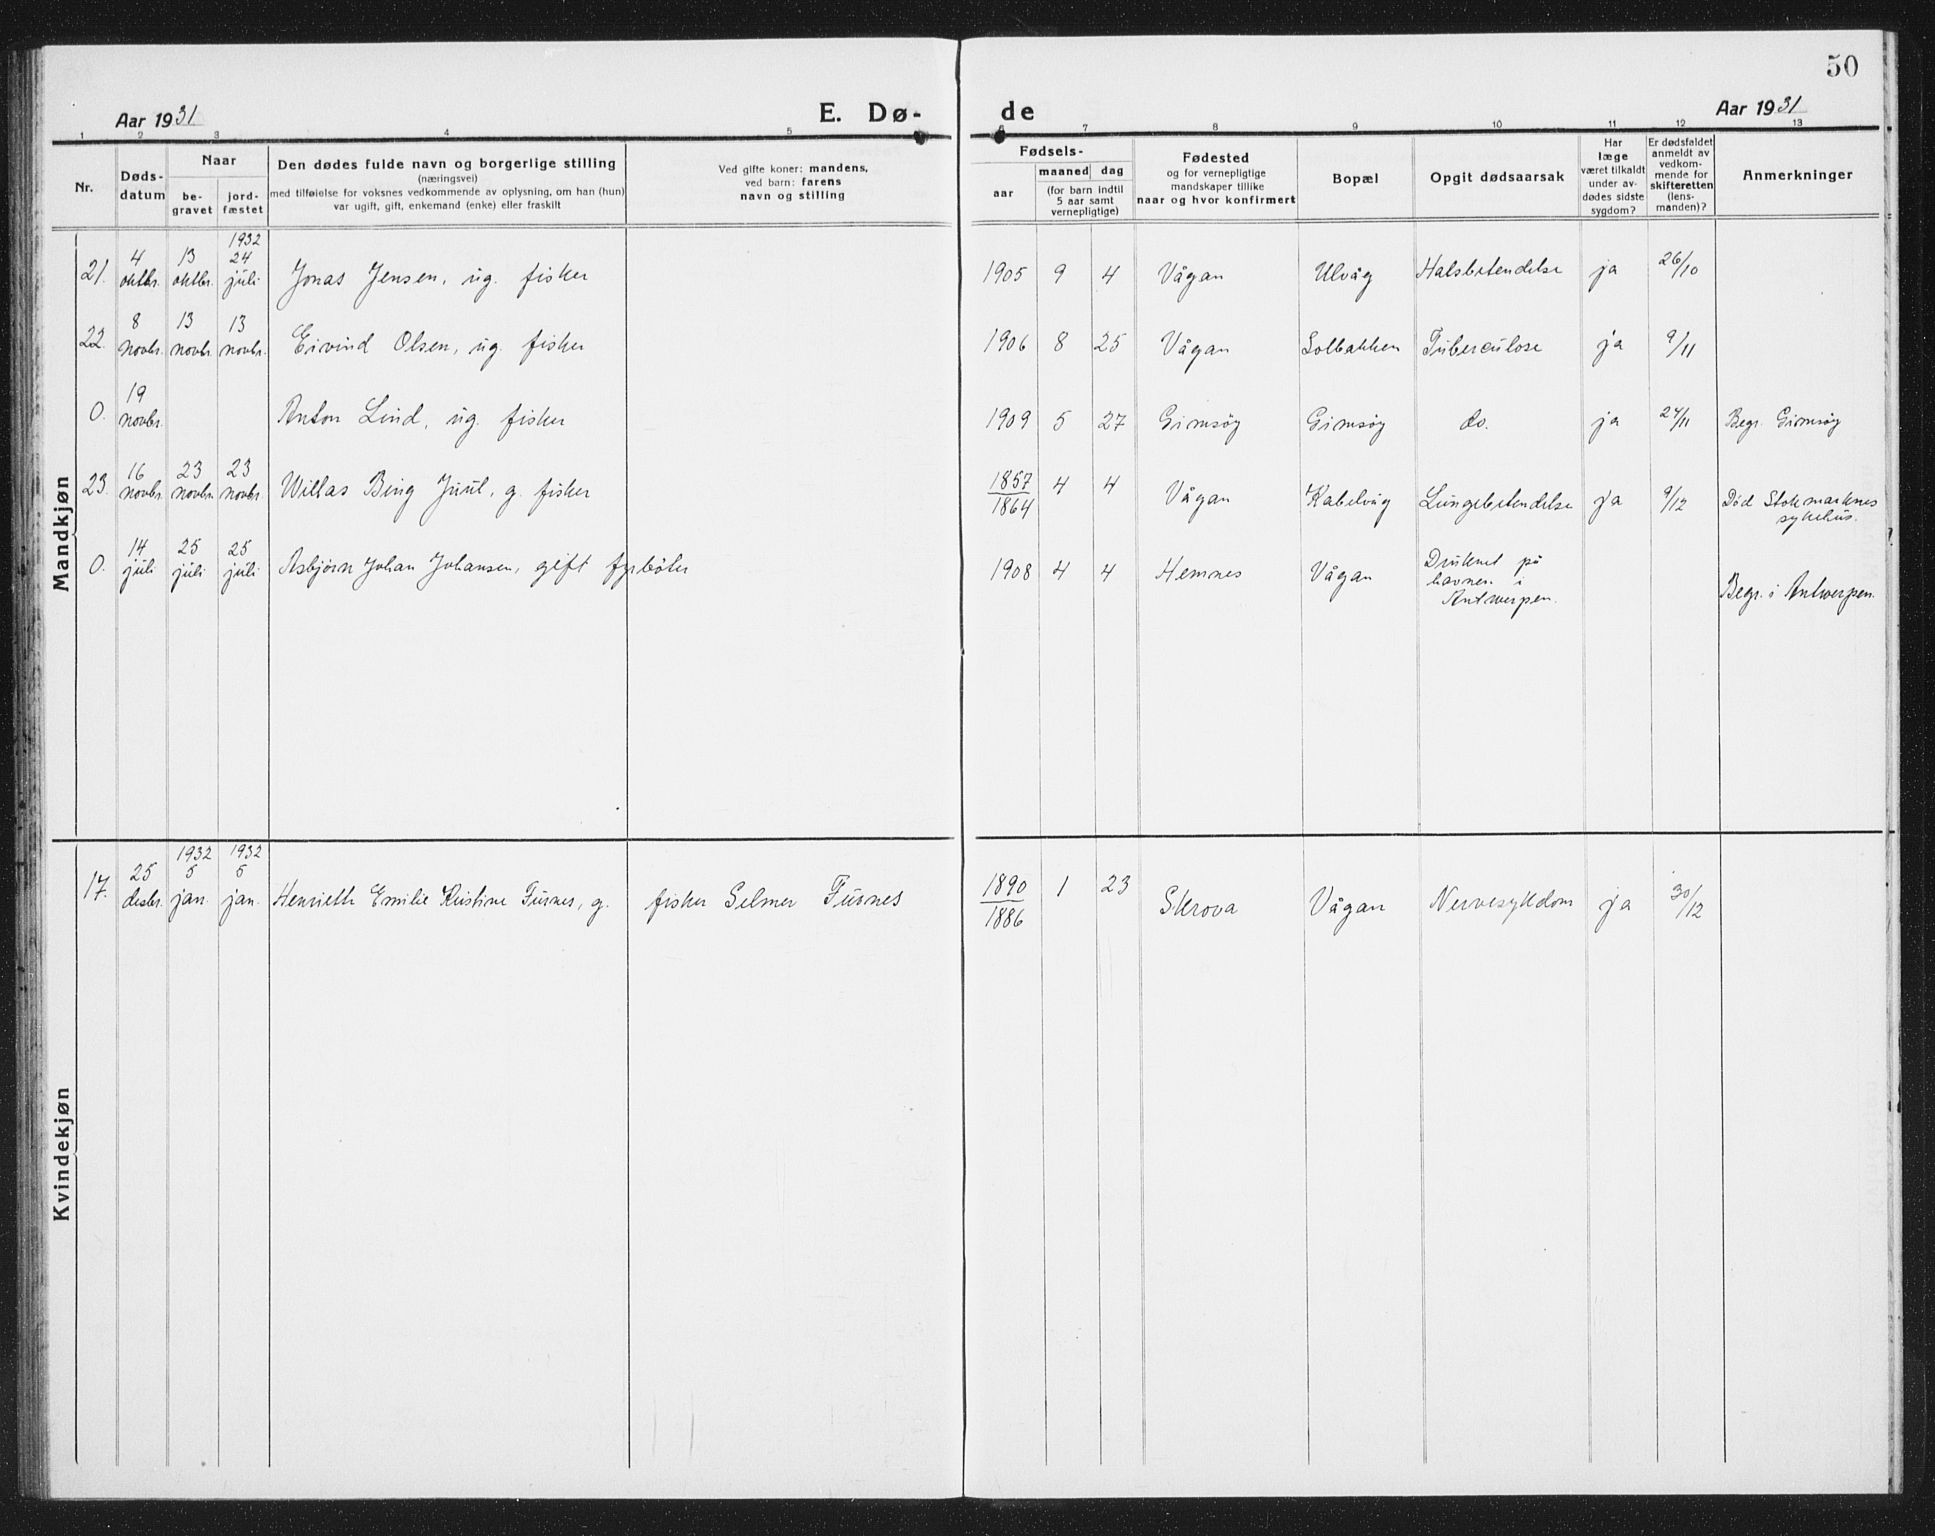 50
Aar 1931 E. Dø- de Aar 1931
1 2 3 4 5 6 7 8 9 10 11 12 13
Nr.
Døds-
datum
Naar
be-
gravet
jord-
fæstet
Den dødes fulde navn og borgerlige stilling
(næringsvei)
med tilføielse for voksnes vedkommende av oplysning, om han (hun)
var ugift, gift, enkemand (enke) eller fraskilt
Ved gifte koner: mandens,
ved barn: farens
navn og stilling
Fødsels-
aar
maaned dag
(for barn indtil
5 aar samt
vernepligtige)
Fødested
og for vernepligtige
mandskaper tillike
naar og hvor konfirmert
Bopæl
Opgit dødsaarsak
Har
læge
været tilkaldt
under av-
dødes sidste
sygdom?
Er dødsfaldet
anmeldt av
vedkom-
mende for
skifteretten
(lens-
manden)?
Anmerkninger
Mandkjøn
1932
4 13 24
21. oktbr. oktbr. juli Jonas Jensen, ug. fisker 1905 9 4 Vågan Ulvåg Halsbetendelse ja 26/10
8 13 13
22. novbr. novbr. novbr. Eivind Olsen, ug. fisker 1906 8 25 Vågan Solbakken Tuberculose ja 9/11
19
0. novbr. Anton Lind, ug. fisker 1909 5 27 Gimsøy Gimsøy do. ja 24/11 Begr. Gimsøy
16 23 23
23. novbr. novbr. novbr. Willas Bing Juul, g. fisker 1857/1864 4 4 Vågan Kabelvåg Lungebetendelse ja 9/12 Død Stokmarknes
sykehus.
14 25 25
0. juli juli juli Asbjørn Johan Johansen, gift fyrbøter 1908 4 4 Hemnes Vågan Druknet på
havnen i
Antwerpen.
Begr. i Antwerpen.
Kvindekjøn
1932 1932
25 5 5
17. desbr. jan. jan. Henriette Emilie Kristine Furnes, g. fisker Selmer Furnes 1890/1886 1 23 Skrova Vågan Nervesykdom ja 30/12